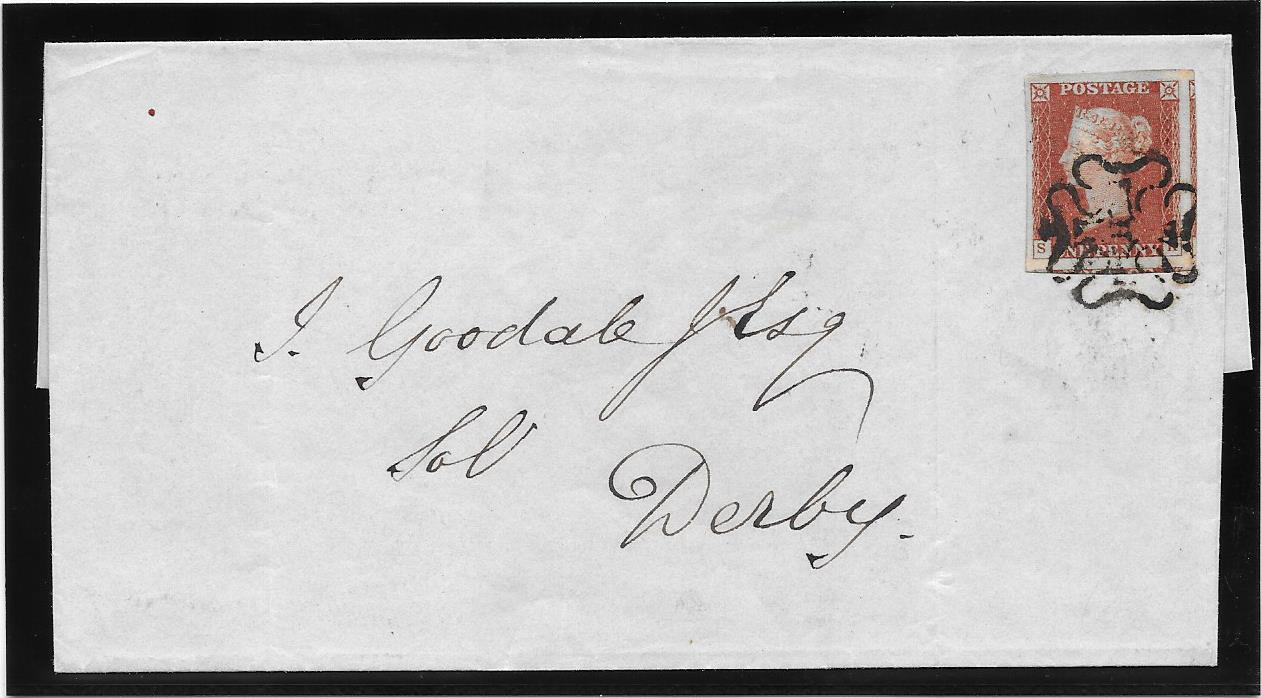 POSTAGE
S
NE PENNY
J. Goodale J Esq
Sol
Derby.